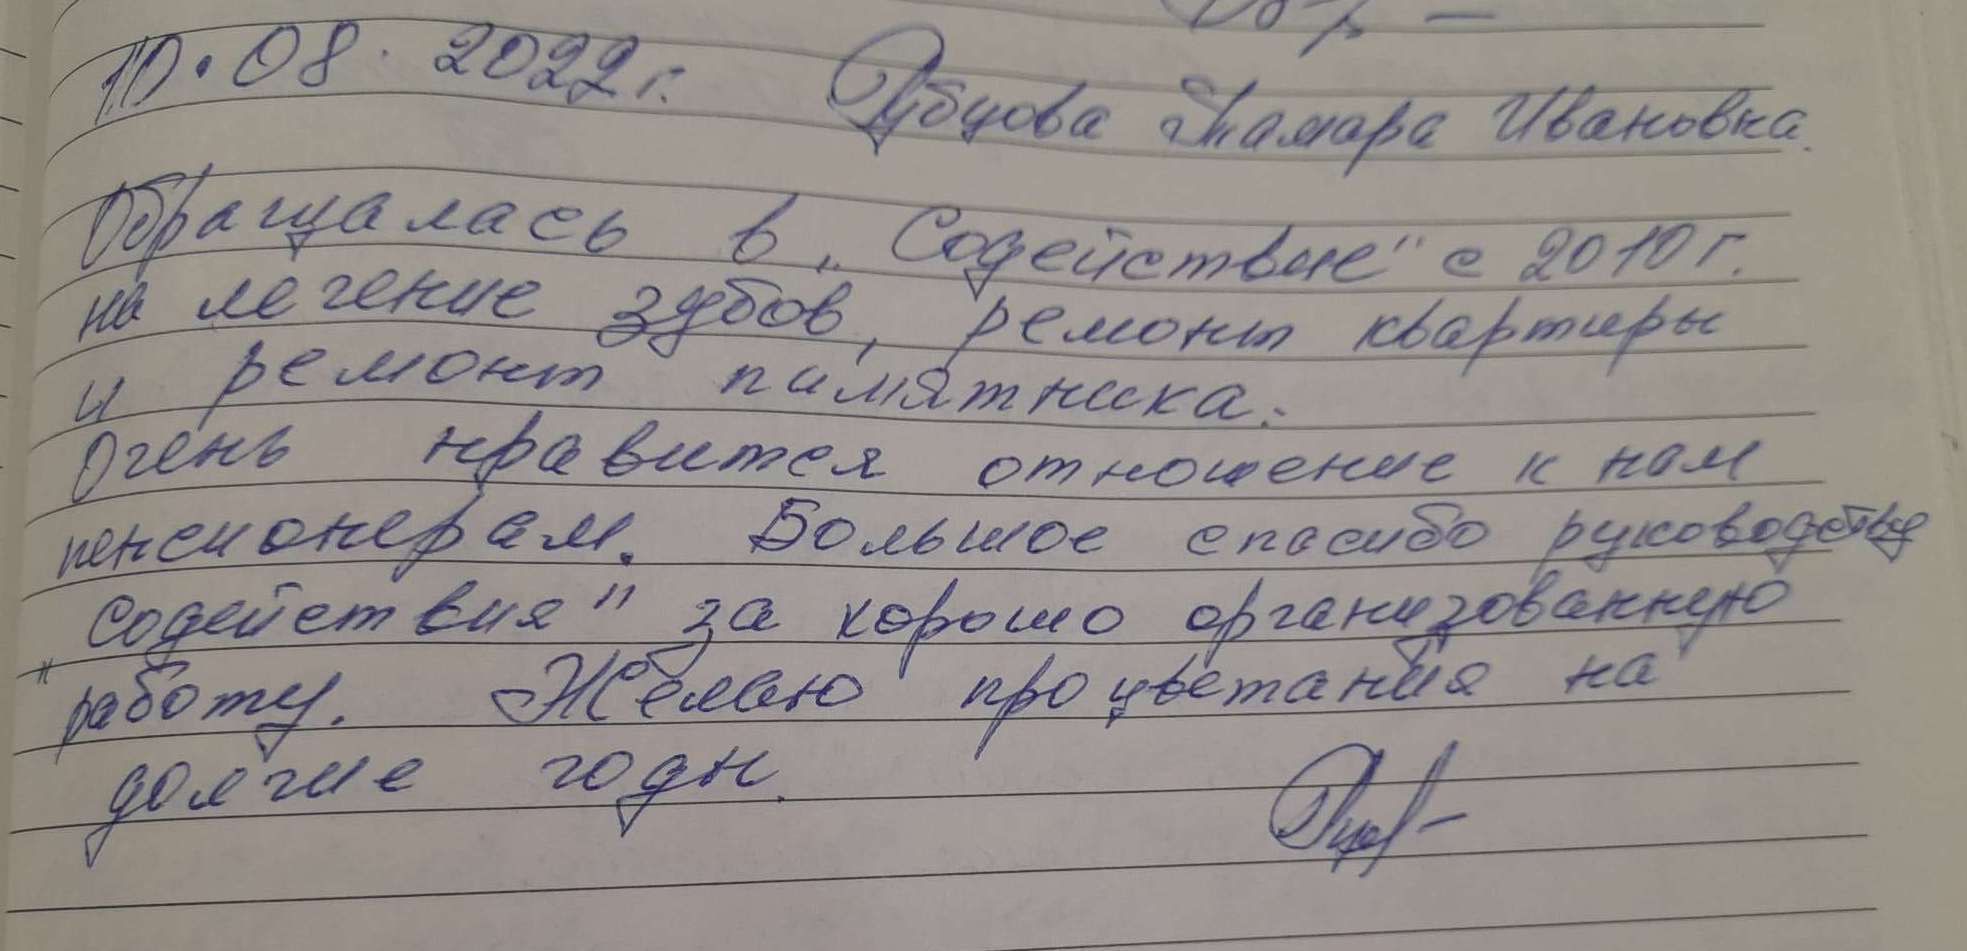 10.08.2022г. Рубцова Тамара Ивановна.
Обращалась в „Содействие" с 2010г.
на лечение зубов, ремонт квартиры
и ремонт памятника.
Очень нравится отношение к нам
пенсионерам. Большое спасибо руководству
„Содействия" за хорошо организованную
работу. Желаю процветания на
долгие годы.